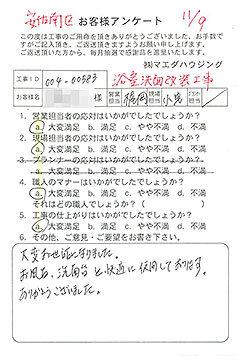 安佐南区 お客様アンケート 11/9
この度は工事のご用命を頂きありがとうございました。お手数で
すがご記入頂き、ご返送頂きますようお願い申し上げます。
ご返送頂いた方から、毎月抽選で感謝品を進呈致します。
㈱マエダハウジング
工事ID 004-00583 浴室洗面改装工事
お客様名 営業担当 福岡 現場担当 プランナー担当
1. 営業担当者の応対はいかがでしたでしょうか?
a. 大変満足 b. 満足 c. やや不満 d. 不満
2. 現場担当者の応対はいかがでしたでしょうか?
a. 大変満足 b. 満足 c. やや不満 d. 不満
3. プランナーの応対はいかがでしたでしょうか?
a. 大変満足 b. 満足 c. やや不満 d. 不満
4. 職人のマナーはいかがでしたでしょうか?
a. 大変満足 b. 満足 c. やや不満 d. 不満
それはどの職人でしょうか?( )
5. 工事の仕上がりはいかがでしたでしょうか?
a. 大変満足 b. 満足 c. やや不満 d. 不満
6. その他、ご意見・ご要望をお書き下さい。
大変お世話になりました。
お風呂、洗面台と快適に使用しております。
ありがとうございました。